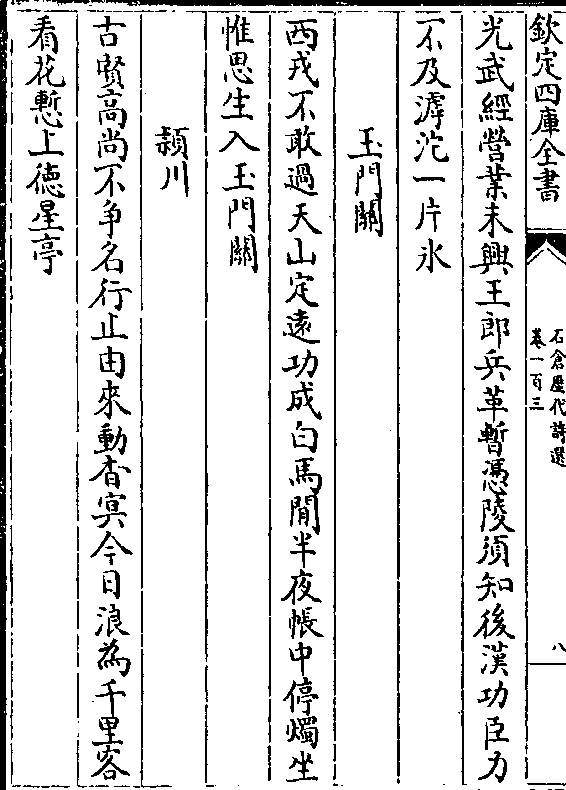 欽定四庫全書
石倉歷代詩選
卷一百三
八
光武經營業未興王郎兵革暫憑陵須知後漢功臣力
不及滹沱一片氷
玉門關
西戎不敢過天山定遠功成白馬閒半夜帳中停燭坐
惟思生入玉門關
潁川
古賢高尚不争名行止由來動杳冥今日浪為千里客
看花慙上德星亭